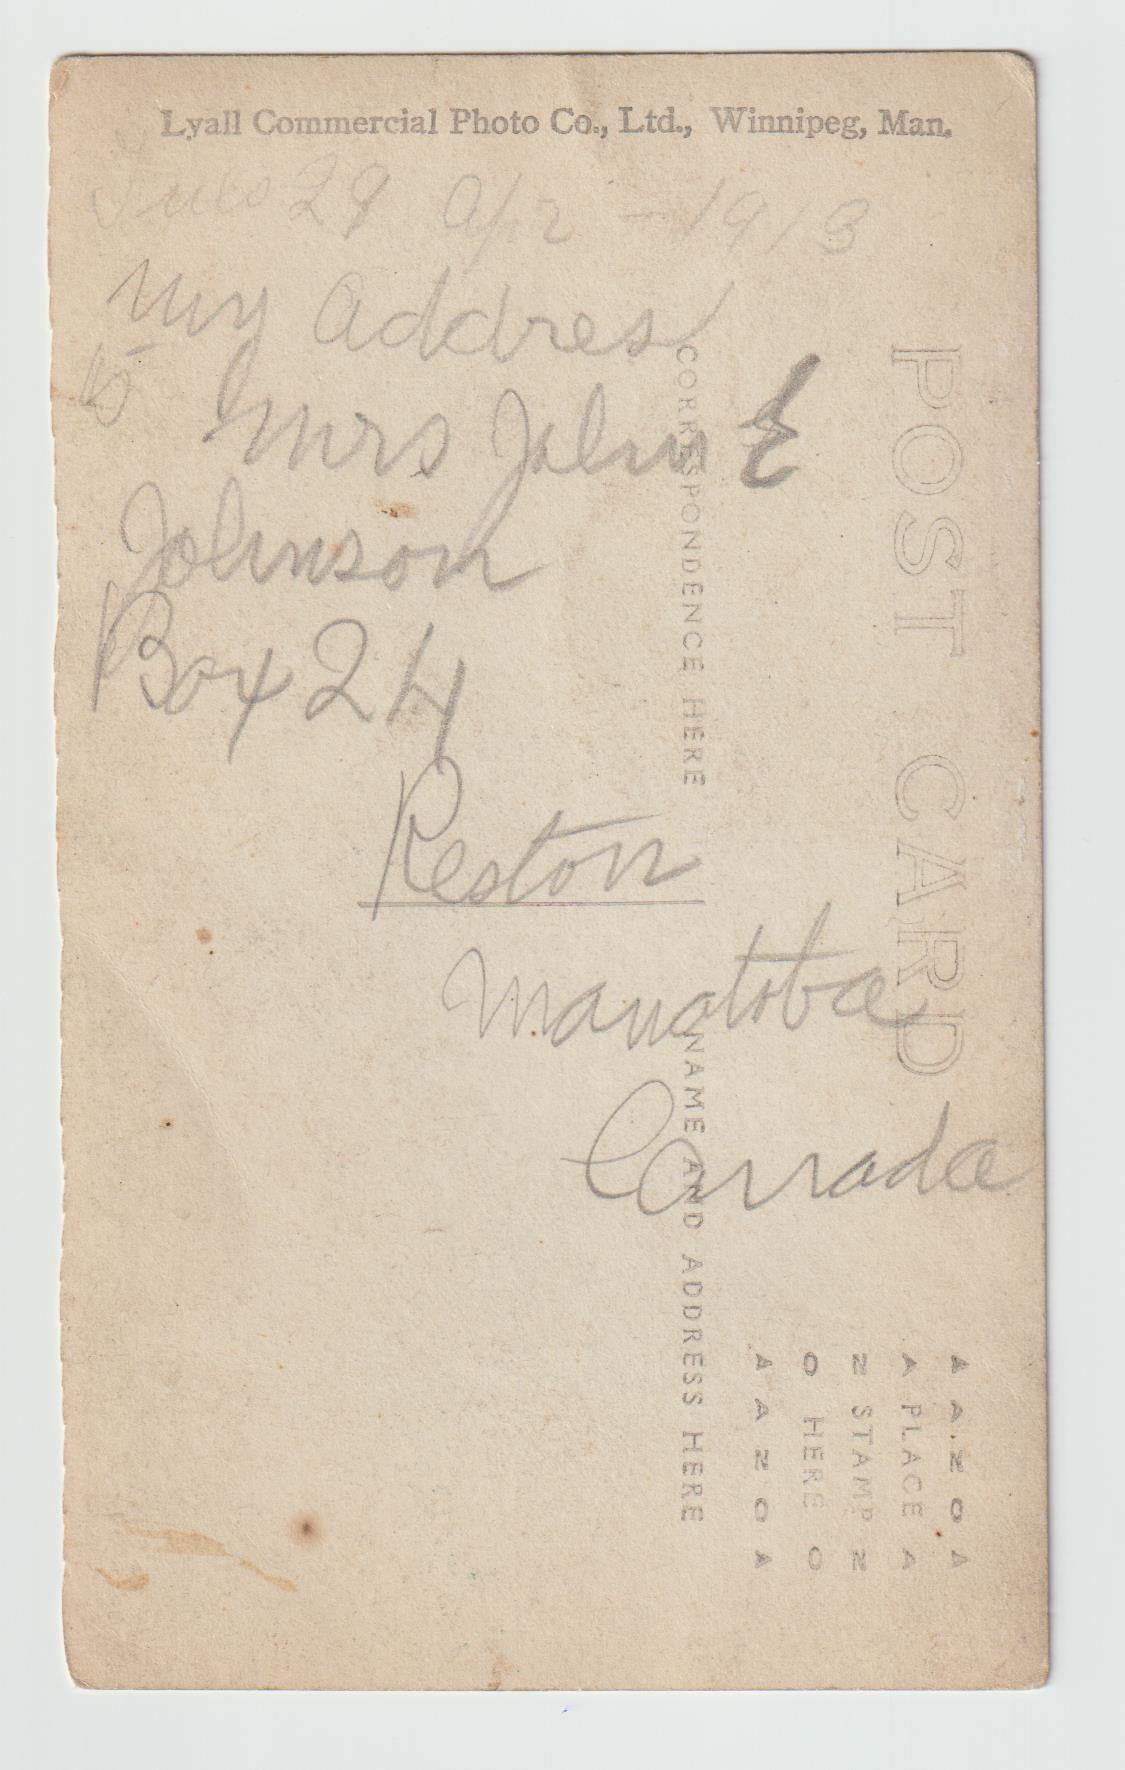 Lyall Commercial Photo Co., Ltd., Winnipeg, Man.
Tues 29 Apr - 1913
My Addres
is Mrs John E
Johnson
Box 24
Reston
Manatoba
Canada
POST CARD
CORRESPONDENCE HERE
NAME AND ADDRESS HERE
A A Z O A
A PLACE A
N STAMP N
O HERE O
A A N O A